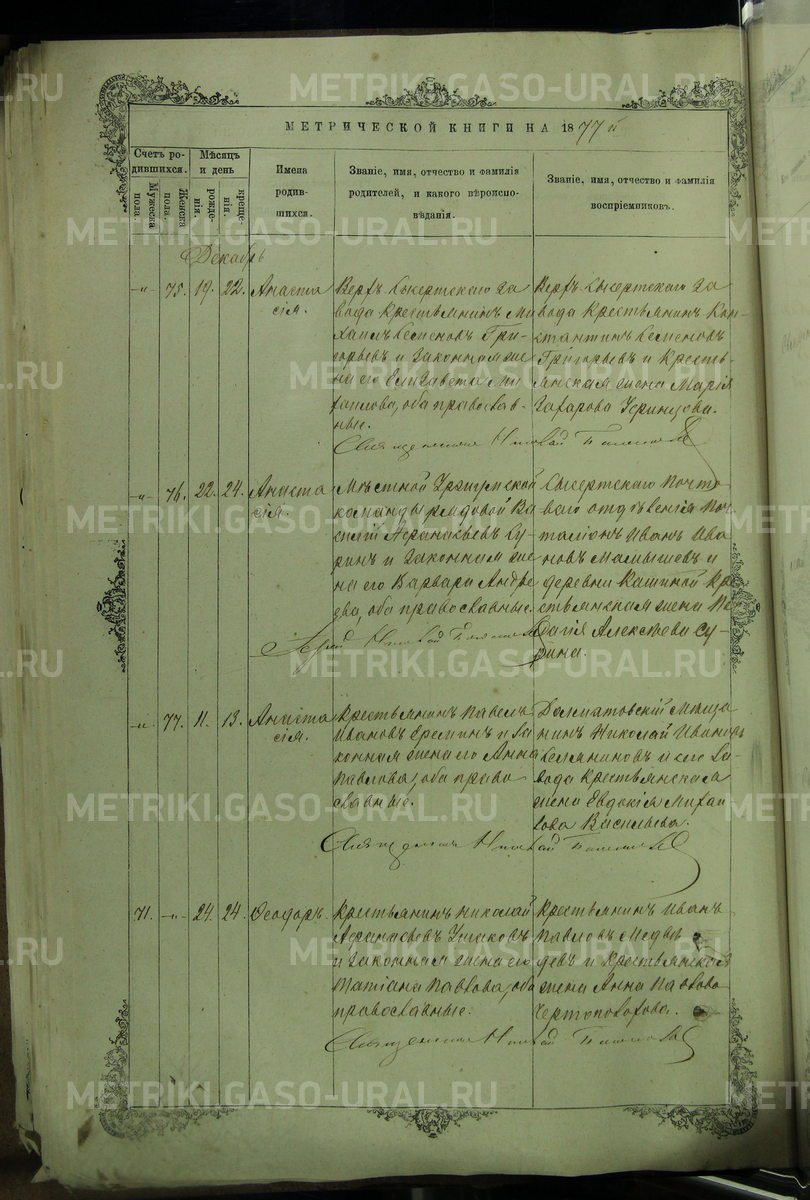 METRIKI.GASO-URAL.RU
МЕТРИЧЕСКОЙ КНИГИ НА 1877й
Счетъ родившихся.
Мужеска пола.
Женска пола.
Мѣсяцъ и день
рожденія.
крещенія.
Имена родившихся.
Званіе, имя, отчество и фамилія родителей, и какого вѣроисповѣданія.
Званіе, имя, отчество и фамилія воспріемниковъ.
Декабрь
-"- 75. 19. 22. Анаста
сія.
Верхъ Сысертскаго За
вода Крестьянинъ Ми
хаилъ Семеновъ Гри-
горьевъ и законная же
на его Елизавета Ми
хаилова, оба православ-
ные.
Верхъ Сысертскаго За
вода Крестьянинъ Кон
стантинъ Семеновъ
Григорьевъ и Кресть-
янская жена Марія
Захарова
Священникъ Николай
-"- 76. 22. 24. Анаста
сія.
Мѣстной
команды рядовой Ва
силій Афанасьевъ Су-
ринъ и законная же
на его Варвара Андре
ева, оба православные.
Сысертскаго Почто
ваго отдѣленія Поч
таліонъ Иванъ Ива
новъ Малышевъ и
деревни Кашиной Кре
стьянская жена Пе
лагія Алексѣева Су-
рина.
Іерей Николай
-"- 77. 11. 13. Анаста
сія.
Крестьянинъ Павелъ
Ивановъ Ереминъ и за
конная жена его Анна
Павлова, оба право
славные.
Далматовскій Мѣща
нинъ Николай Ивановъ
и сего за
вода Крестьянская
жена Евдокія Михаи
лова Васильева.
Священникъ Николай
71. -"- 24. 24. Феодоръ.
Крестьянинъ Николай
Афанасьевъ Ушаковъ
и законная жена его
Татіана Павлова, оба
православные.
Крестьянинъ Иванъ
Павловъ Медвѣ
девъ и Крестьянская
жена Анна Павлова
Чертополохова.
Священникъ Николай